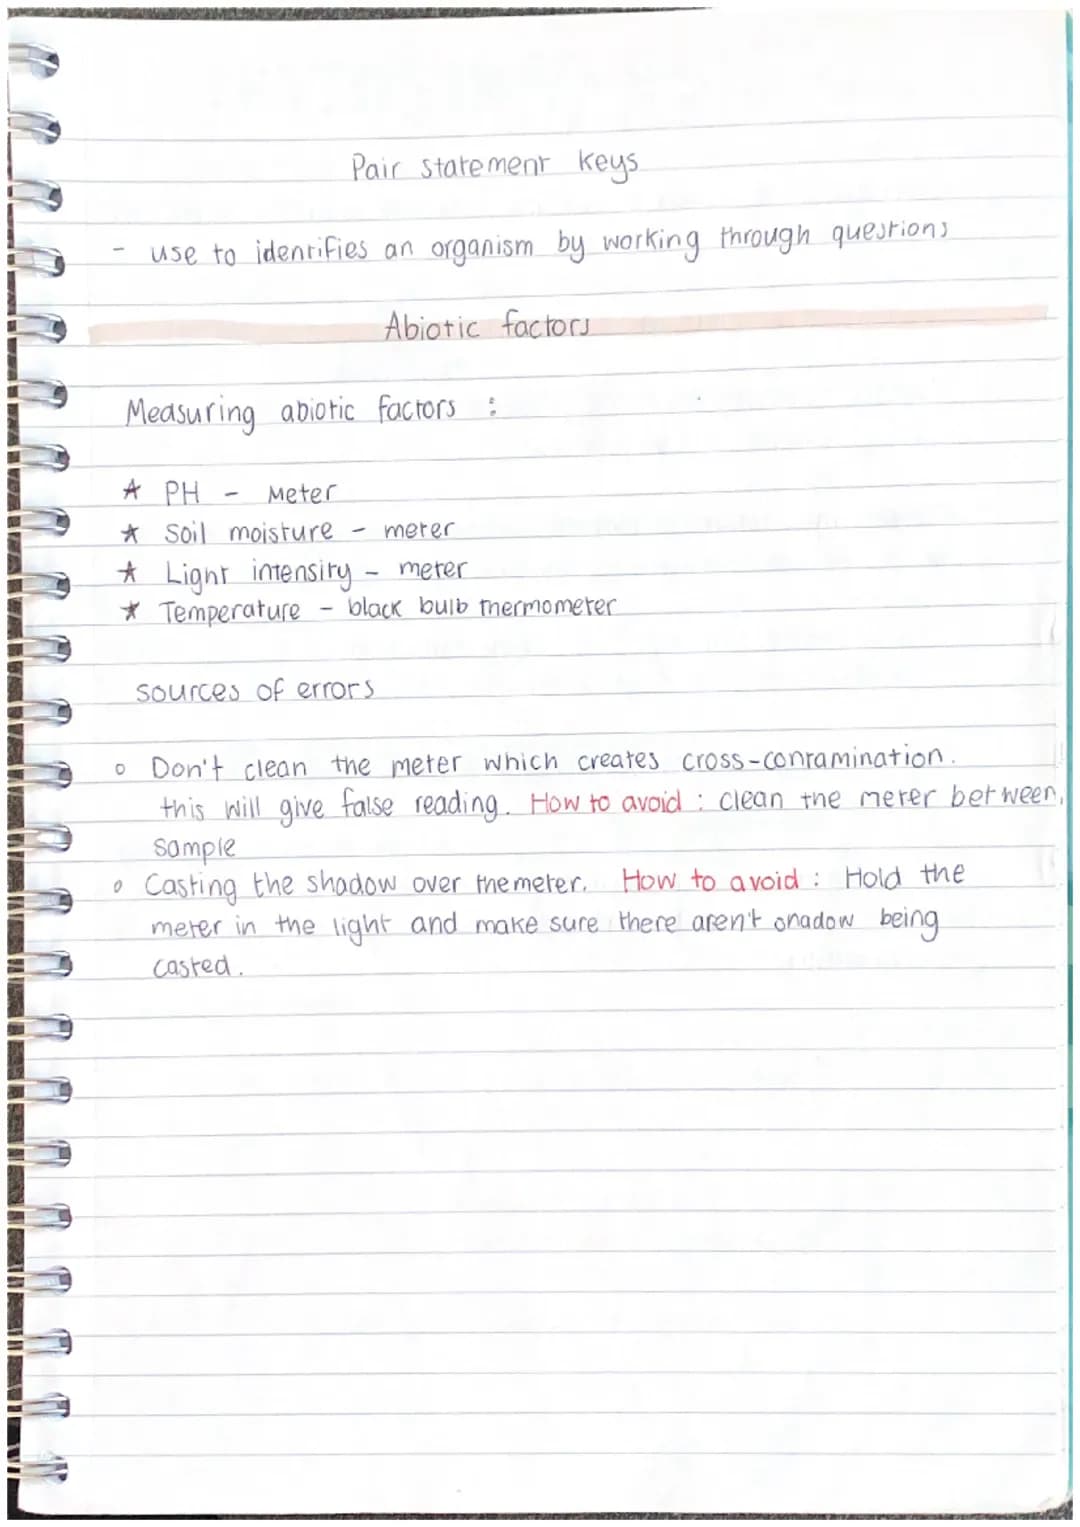 Pair statement keys
- use to identifies an organism by working through questions
Abiotic factors
Measuring abiotic factors :
☆ PH - Meter
☆ Soil moisture - meter
☆ Light intensity - meter
☆ Temperature - black bulb thermometer
sources of errors
○ Don't clean the meter which creates cross-contamination.
this will give false reading. How to avoid : clean the meter between
sample
○ Casting the shadow over the meter. How to avoid : Hold the
meter in the light and make sure there aren't shadow being
casted.